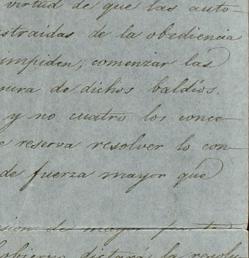 virtud de que las auto-
straidas de la obediencia
impiden, comenzar las
sura de dichos baldios.
y no cuatro los conce-
e reserva resolver lo con-
de fuerza mayor que
sion de mayor
dictará la resolu-